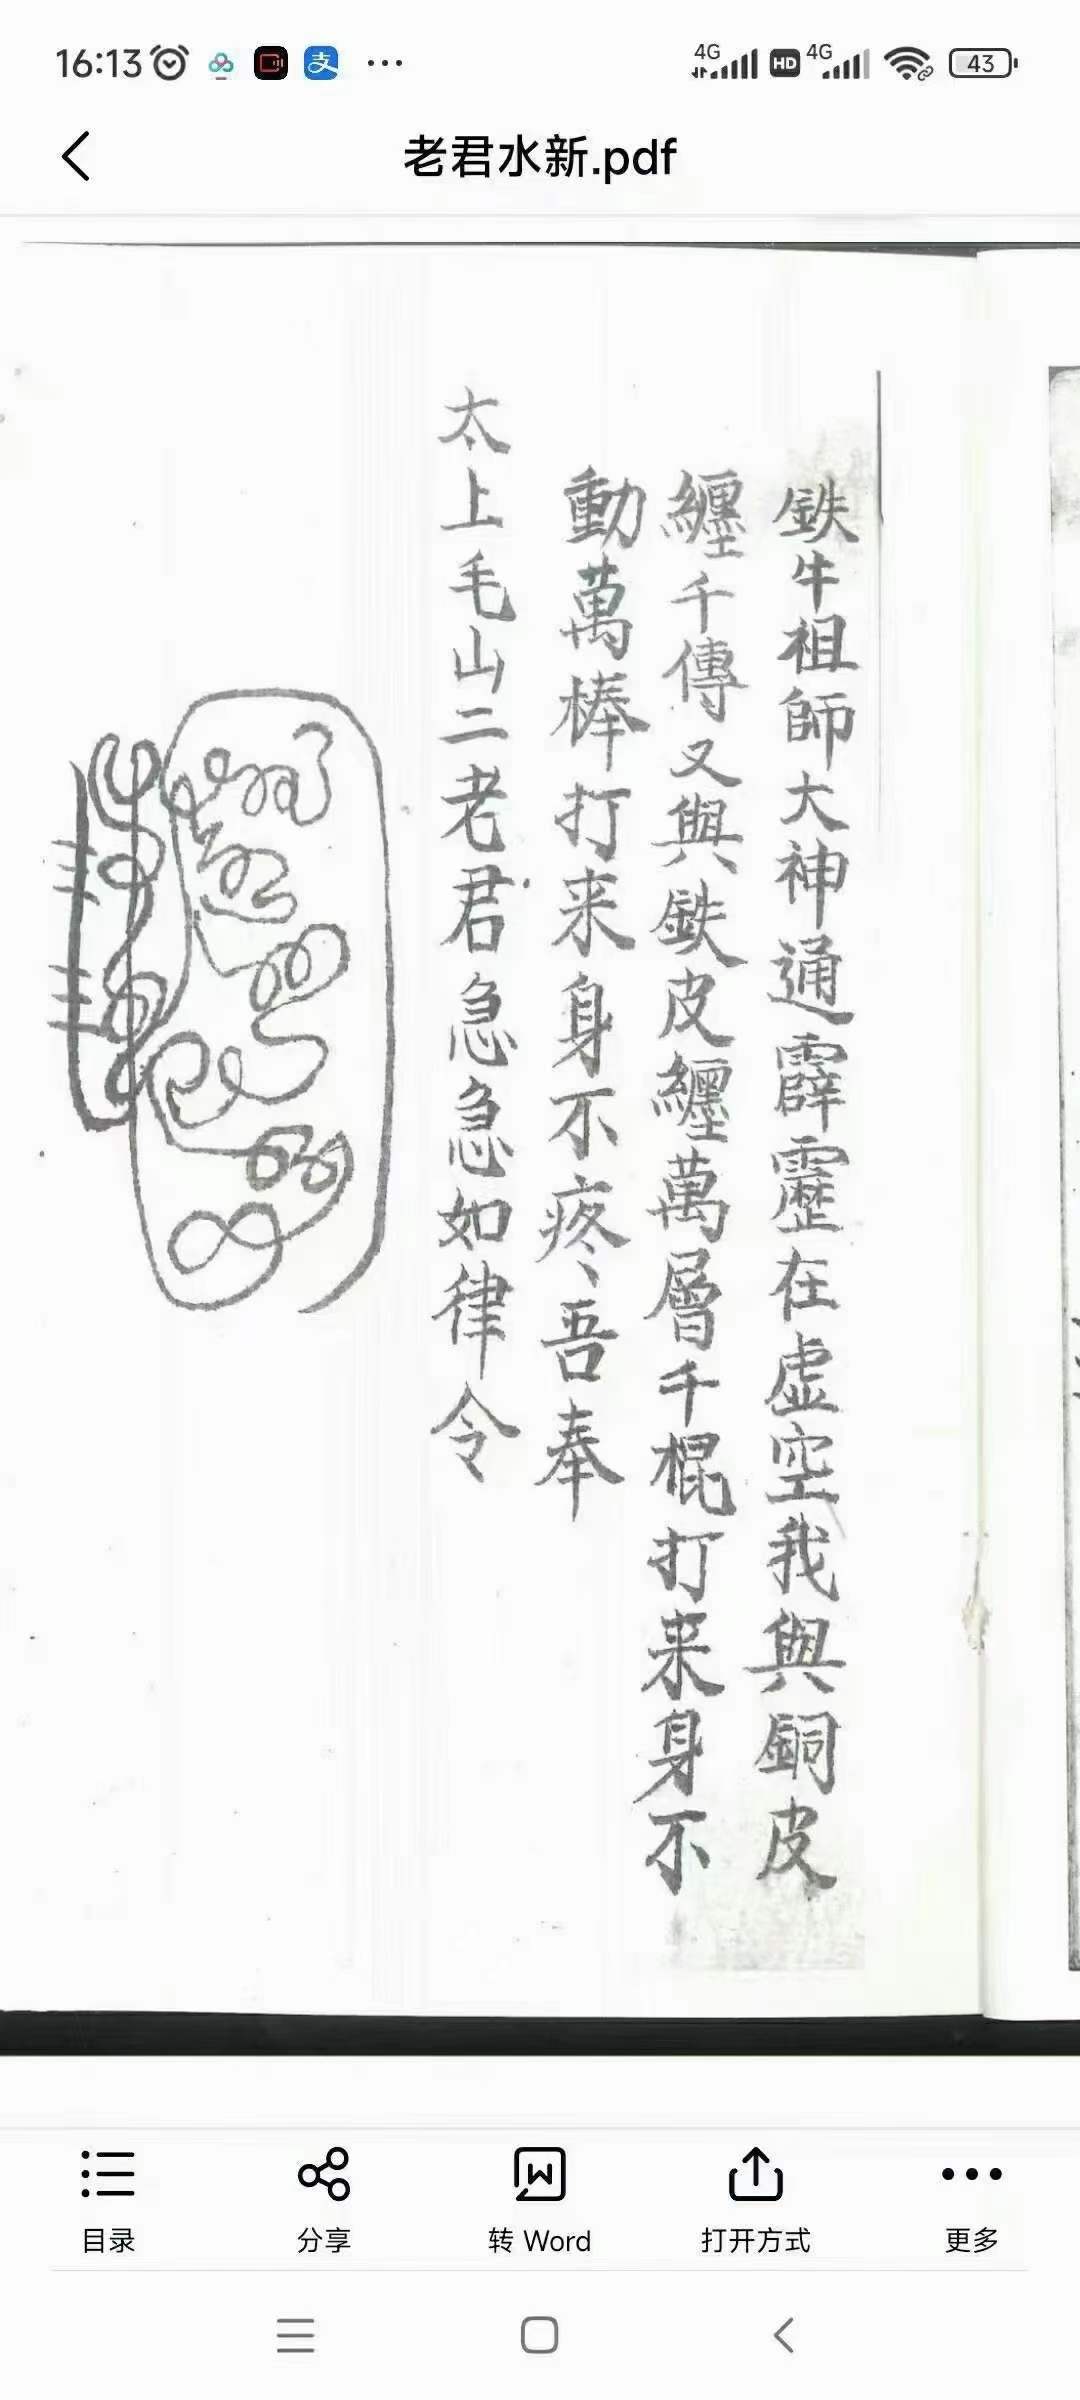 16:13
4G HD 4G 43
老君水新.pdf
鉄牛祖師大神通霹靂在虛空我與銅皮
纏千傳又與鉄皮纏萬層千棍打来身不
動萬棒打来身不疼吾奉
太上毛山二老君急急如律令
目录
分享
转 Word
打开方式
更多